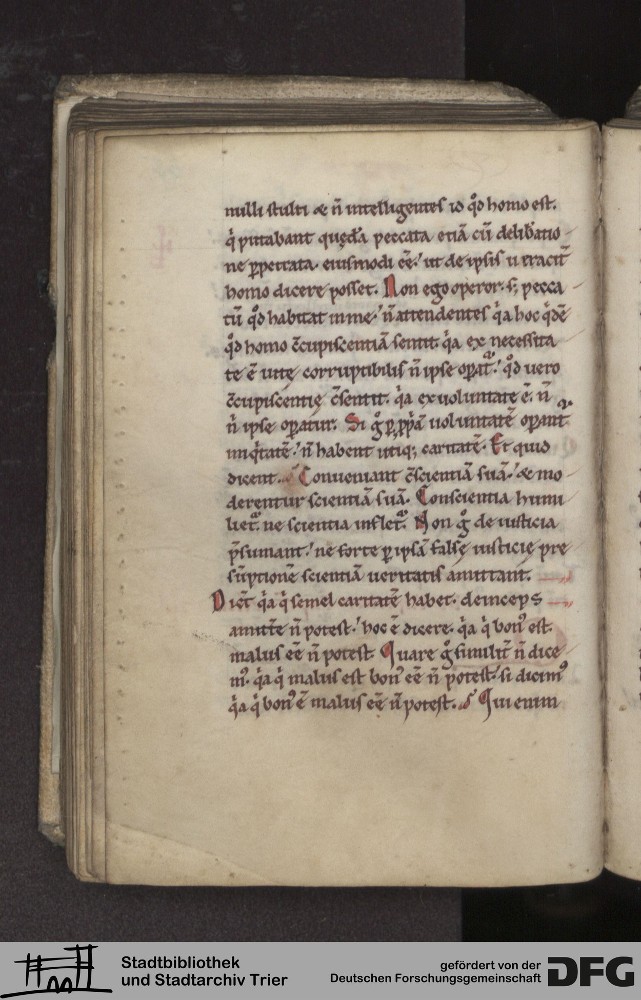 nulli stulti & n̄ intelligentes id qd̛ homo est.
q̇ putabant quęda peccata etiā cū delibatio
ne ꝑpetrata. eiusmodi eē. ut de ipsis
homo dicere posset. Non ego operor. s; pecca
tū qd̛ habitat in me. n̄ attendentes q̇a hoc
qd̛ homo c̄cupiscentiā sentit. q̇a ex necessita
te ē uitę corruptibilis n̄ ipse oꝑat᷑. qd̛ uero
c̄cupiscentię c̄sentit. q̇a ex uoluntate ē. n̄
n̄ ipse oꝑatur. Si g̊ ꝑ ꝓpā uoluntatē oꝑant᷑
iniq̇tatē. n̄ habent utiq; caritatē. Et quid
dicent. Conueniant c̄scientiā suā. & mo
derentur scientiā suā. Conscientia humi
liet᷑. ne scientia inflet᷑. Non g̊ de iusticia
p̄sumant. ne forte ꝑ ipsā falsę iusticię pre
sūptionē scientiā ueritatis amittant.
Dict̄ q̇a q̇ semel caritatē habet. deinceps
amitt̄e n̄ potest. hoc ē dicere. q̇a q̇ bonꝰ est.
malus eē n̄ potest. Quare g̊ similit̄ n̄ dice
mꝰ. q̇a q̇ malus est bonꝰ eē n̄ potest. si dicimꝰ
q̇a q̇ bonꝰ ē malus eē n̄ potest. Qui enim
Stadtbibliothek
und Stadtarchiv Trier
gefördert von der
Deutschen Forschungsgemeinschaft
DFG